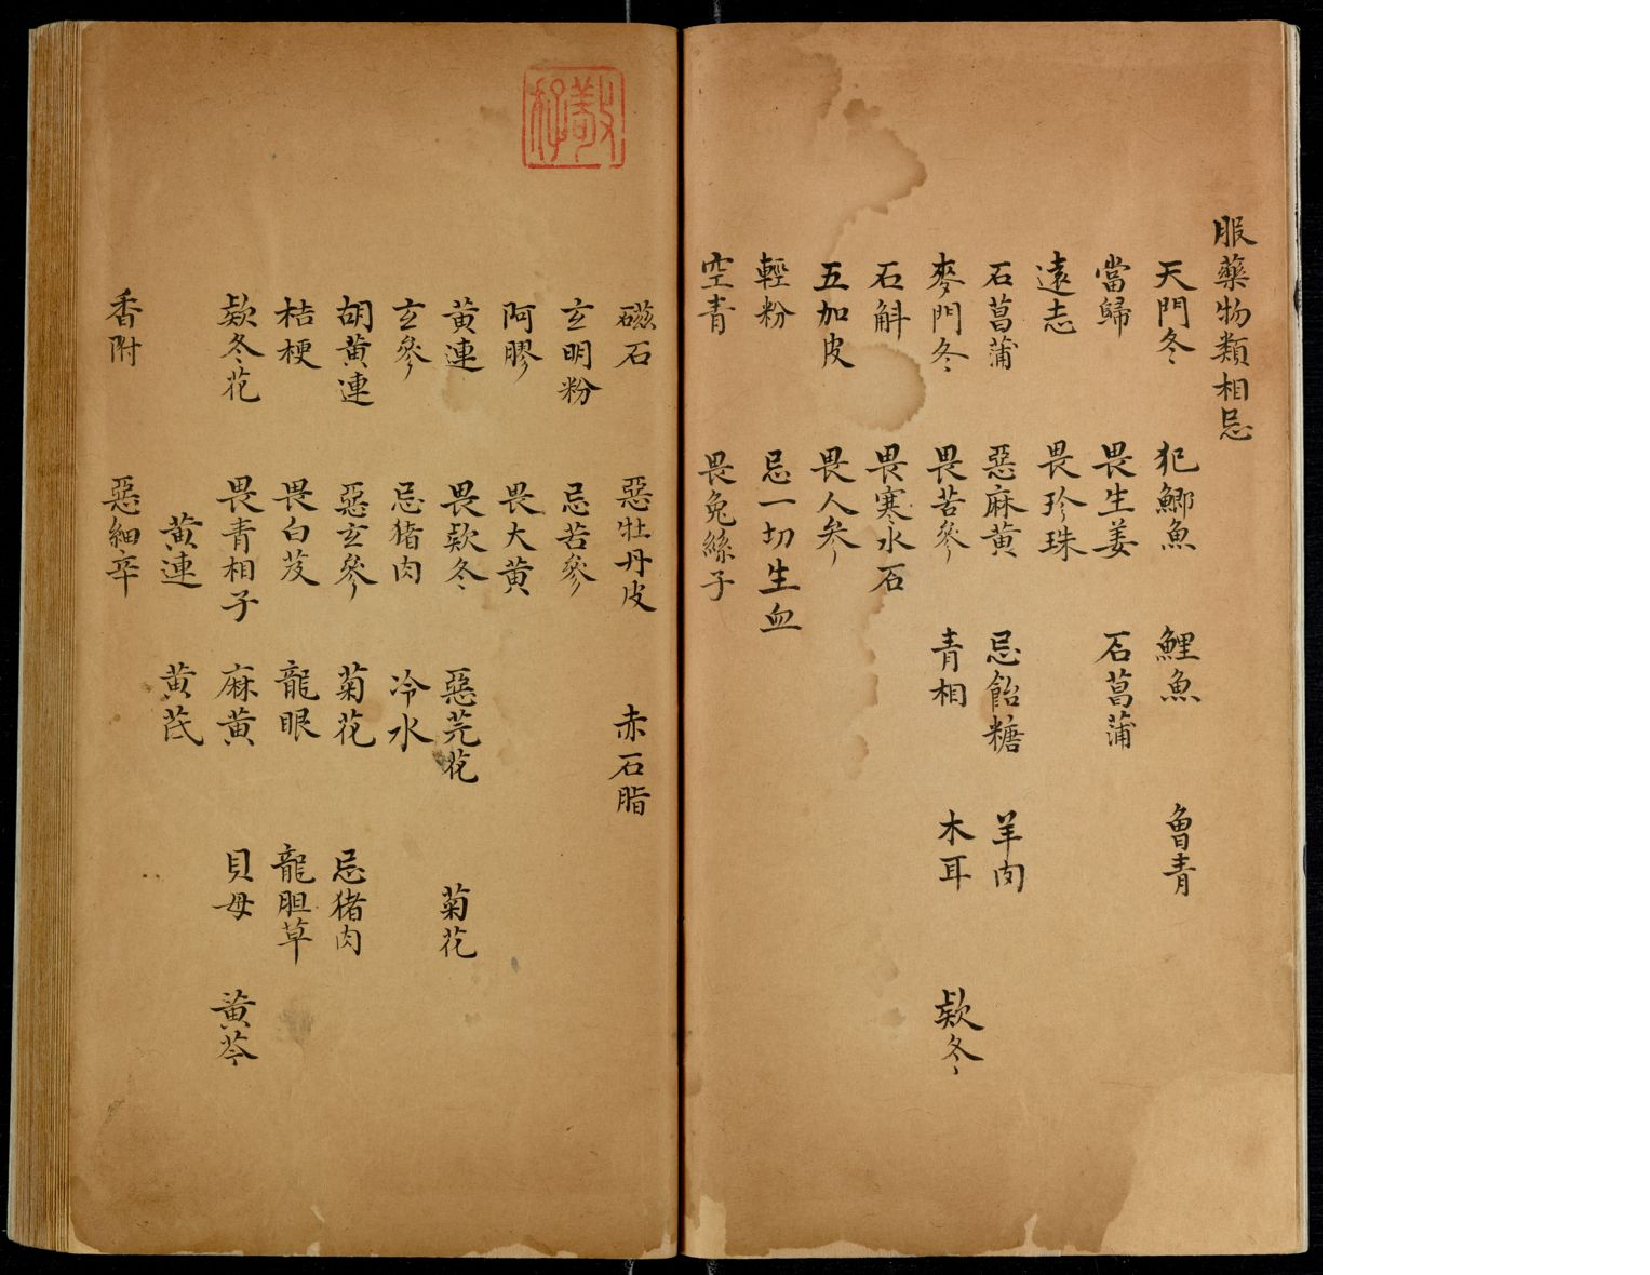 服藥物類相忌
天門冬 犯鯽魚 鯉魚 魯青
當歸 畏生姜 石菖蒲
遠志 畏珍珠
石菖蒲 惡麻黄 忌飴糖 羊肉
麥門冬 畏苦參 青相 木耳 欵冬
石斛 畏寒水石
五加皮 畏人參
輕粉 忌一切生血
空青 畏兔絲子
磁石 惡牡丹皮 赤石脂
玄明粉 忌苦參
阿膠 畏大黄
黄連 畏欵冬 惡芫花 菊花
玄參 忌猪肉 冷水
胡黄連 惡玄參 菊花 忌猪肉
桔梗 畏白芨 龍眼 龍胆草
欵冬花 畏青相子 麻黄 貝母 黄芩
黄連 黄芪
香附 惡細辛